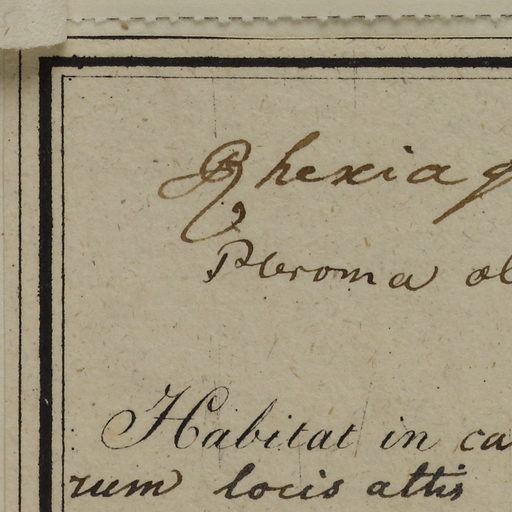 Rhexia
Pleroma
Habitat in ca
rum locis altis